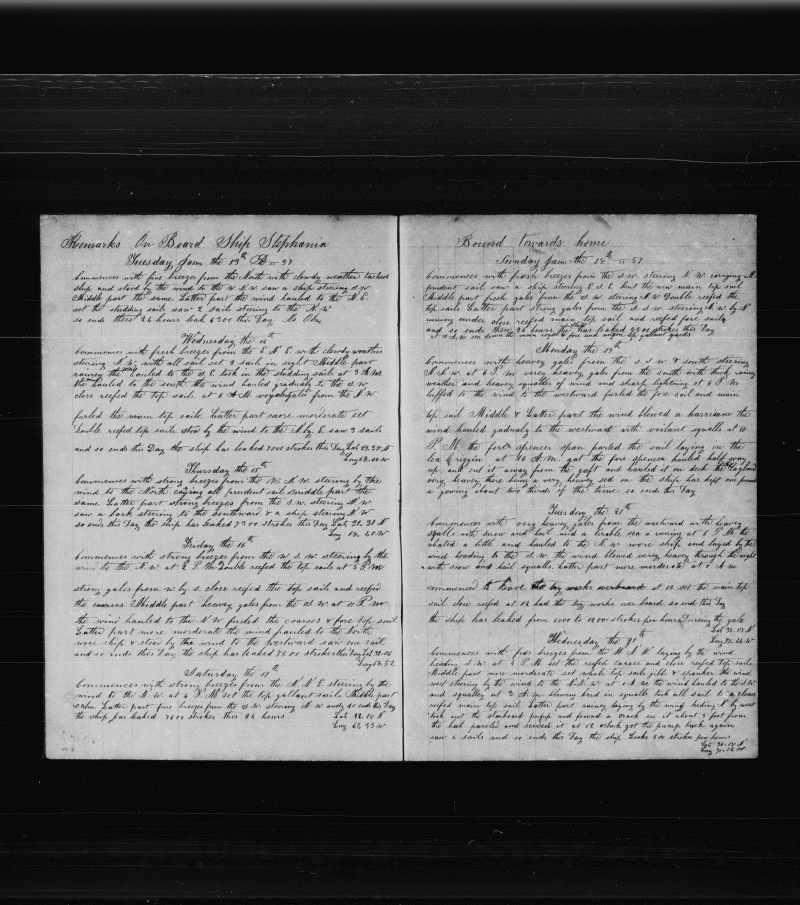 Remarks On Board Ship Stephania
Tuesday Jan the 13th 57
Commences with fine breezes from the North with cloudy weather tacked
ship and stood by the wind to the W N W saw a ship steering S W
Middle part the same Latter part the wind hauled to the N E
set the studding sail saw 2 sails steering to the N W
so ends these 24 hours leak 6300 this Day No Obs
Wednesday the 14
Commences with fresh breezes from the E N E with cloudy weather
steering N W with all sail set 2 sails in sight Middle part
rainey the wind hauled to the S E took in the studding sails at 3 A M
the hauled to the south the wind hauled gradualy to the S W
close reefed the top sails at 6 A M gales from the N W
furled the main top sails Latter part more moderate set
double reefed top sails stood by the wind to the N by E saw 3 sails
and so ends this Day the ship has leaked 7000 strokes this Day Lat 32.38 N
Long 68.00 W
Thursday the 15th
Commences with strong breezes from the W N W steering by the
wind to the North carying all prudent sail Middle part the
same Latter part strong breezes from the S W steering N W
saw a bark steering to the southward & a ship steering N W
so ends this Day the ship has leaked 7300 strokes this Day Lat 31.31 N
Long 68.40 W
Friday the 16th
Commences with strong breezes from the W S W steering by the
wind to the N W at 2 P M Double reefed the top sails at 5 P M
strong gales from W by S close reefed the top sails and reefed
the coarses Middle part heavey gales from the S W at 11 P M
the wind hauled to the N W furled the coarses & fore top sail
Latter part more moderate the wind hauled to the North
wore ship & stood by the wind to the westward saw one sail
and so ends this Day the ship has leaked 7500 strokes this Day Lat 32.06
Long 68.52
Saturday the 17th
Commences with strong breezes from the N N E steering by the
wind to the N W at 4 P M set the top gallant sails Middle part
calm Latter part fine breezes from the S W steering N W and so ends this Day
the ship has leaked 7600 strokes this 24 hours Lat 32.10 N
Long 69.33 W
Bound towards home
Sunday Jan the 18th 57
Commences with fresh breezes from the S W steering N W carrying all
prudent sail saw a ship steering E S E bent the new main top sail
Middle part fresh gales from the S W steering N W Double reefed the
top sails Latter part strong gales from the S S W steering N W by N
runing under close reefed main top sail and reefed fore sail
and so ends these 24 hours the ship has leaked 8400 strokes this Day
at 10 A M sent down the main royal & fore and mizen top gallant yards
Monday the 19th
Commences with heavey gales from the S S W & south steering
N W at 6 P M verey heavey gales from the south with thick rainey
weather and heavey squalls of wind and sharp lightening at 6 P M
luffed to the wind to the westward furled the fore sail and main
top sail Middle & Latter part the wind blowed a hurricane the
wind hauled gradualy to the westward with voilant squalls at 10
P M the fore spencer span parted the sail laying in the
lea rigin at 10 A M got the fore spencer hauled half way
up and cut it away from the gaft and hauled it on deck the
verey heavey there being a verey heavey sea on the ship has kept one pump
a gowing about two thirds of the time so ends this Day
Tuesday the 20th
Commences with verey heavey gales from the westward with heavey
squalls with snow and hail and a terable sea a runing at 6 P M the
abated a little and hauled to the N W wore ship and layed by the
wind heading to the S W the wind blowed verey heavey through the night
with snow and hail squalls Latter part more moderate at 4 A M
commenced to heave the try works overboard at 10 set the main top
sail close reefed at 12 had the try works over board so ends this Day
the ship has leaked from 1000 to 1200 strokes per hour Dureing the gale
Lat 33.08 N
Long 71.44 W
Wednesday the 21st
Commences with fresh breezes from the W N W laying by the wind
heading S W at 4 P M set the reefed coarses and close reefed top sails
Middle part more moderate set whole top sails jibb & spanker the wind
west steering by the wind to the N N W at 1 A M the wind hauled to the S W
and squalley at 3 A M blowing hard in squalls took all sail to a close
reefed main top sail Latter part rainey laying by the wind heding N by west
took out the starboard pump and found a crack in it about 5 foot from
the heel parceled and served it at 12 oclock got the pump back again
saw 2 sails and so ends this Day the ship leaks 500 strokes per hour
Lat 32.19 N
Long 71.16 W